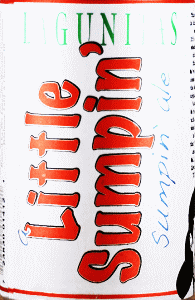 LAGUNITAS
"Little
Sumpin'
Sumpin ale